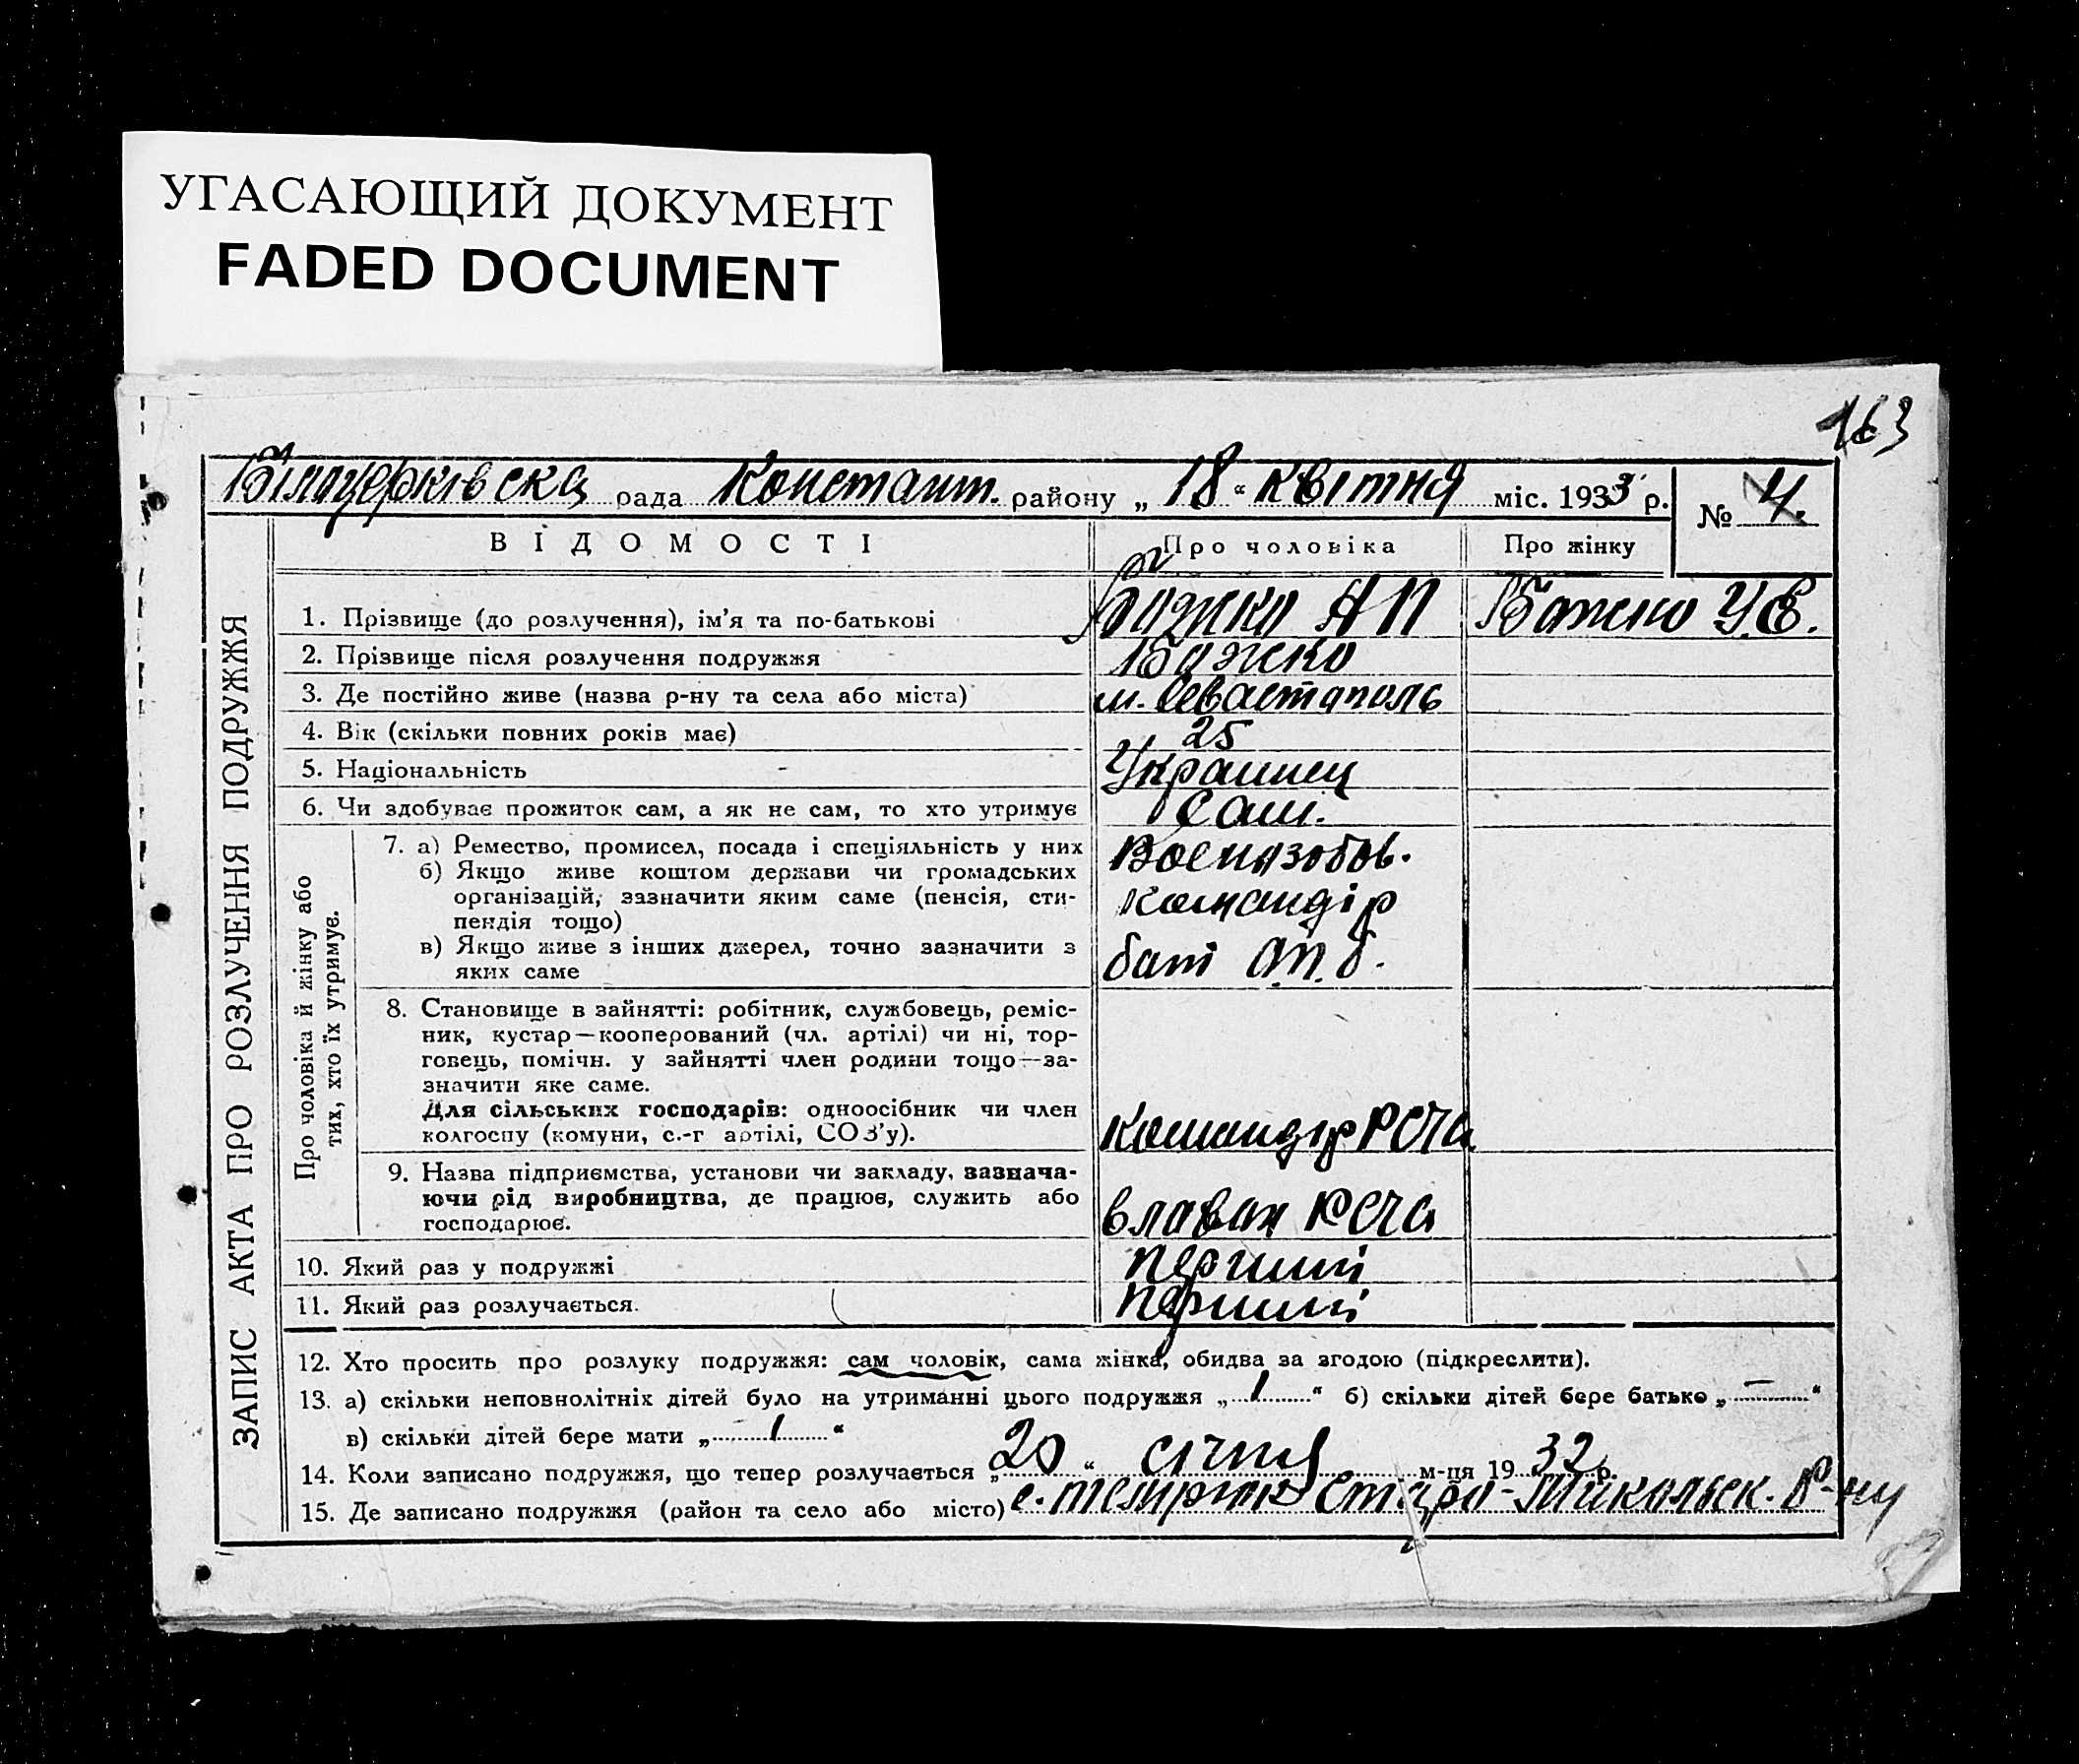 УГАСАЮЩИЙ ДОКУМЕНТ
FADED DOCUMENT
163
Білоцерківска рада Констант. району „ 18 “ квітня міс. 1933 р.
№ 4.
ЗАПИС АКТА ПРО РОЗЛУЧЕННЯ ПОДРУЖЖЯ
ВІДОМОСТІ Про чоловіка Про жінку
1. Прізвище (до розлучення), ім'я та по-батькові Бажко А П Бажко У.Є.
2. Прізвище після розлучення подружжя Бажко
3. Де постійно живе (назва р-ну та села або міста) м. Севастополь
4. Вік (скільки повних років має) 25
5. Національність Украинец
6. Чи здобуває прожиток сам, а як не сам, то хто утримує Сам.
Про чоловіка й жінку або
тих, хто їх утримує.
7. а) Ремество, промисел, посада і спеціяльність у них Воєнзобов.
б) Якщо живе коштом держави чи громадських
організацій, зазначити яким саме (пенсія, сти- командір
пендія тощо)
в) Якщо живе з інших джерел, точно зазначити з бат
яких саме
8. Становище в зайнятті: робітник, службовець, реміс-
ник, кустар—кооперований (чл. артілі) чи ні, тор-
говець, помічн. у зайнятті член родини тощо—за-
значити яке саме.
Для сільських господарів: одноосібник чи член
колгоспу (комуни, с.-г артілі, СОЗ'у). командір РСЧА
9. Назва підприємства, установи чи закладу, зазнача-
ючи рід виробництва, де працює, служить або
господарює. в лавах РСЧА
10. Який раз у подружжі перший
11. Який раз розлучається. перший
12. Хто просить про розлуку подружжя: сам чоловік, сама жінка, обидва за згодою (підкреслити).
13. а) скільки неповнолітніх дітей було на утриманні цього подружжя „ 1 “ б) скільки дітей бере батько „ — “
в) скільки дітей бере мати „ 1 “
14. Коли записано подружжя, що тепер розлучається „ 20 “ січня м-ця 1932 р.
15. Де записано подружжя (район та село або місто) с. Темрюк Старо-Микольск. Р-ну